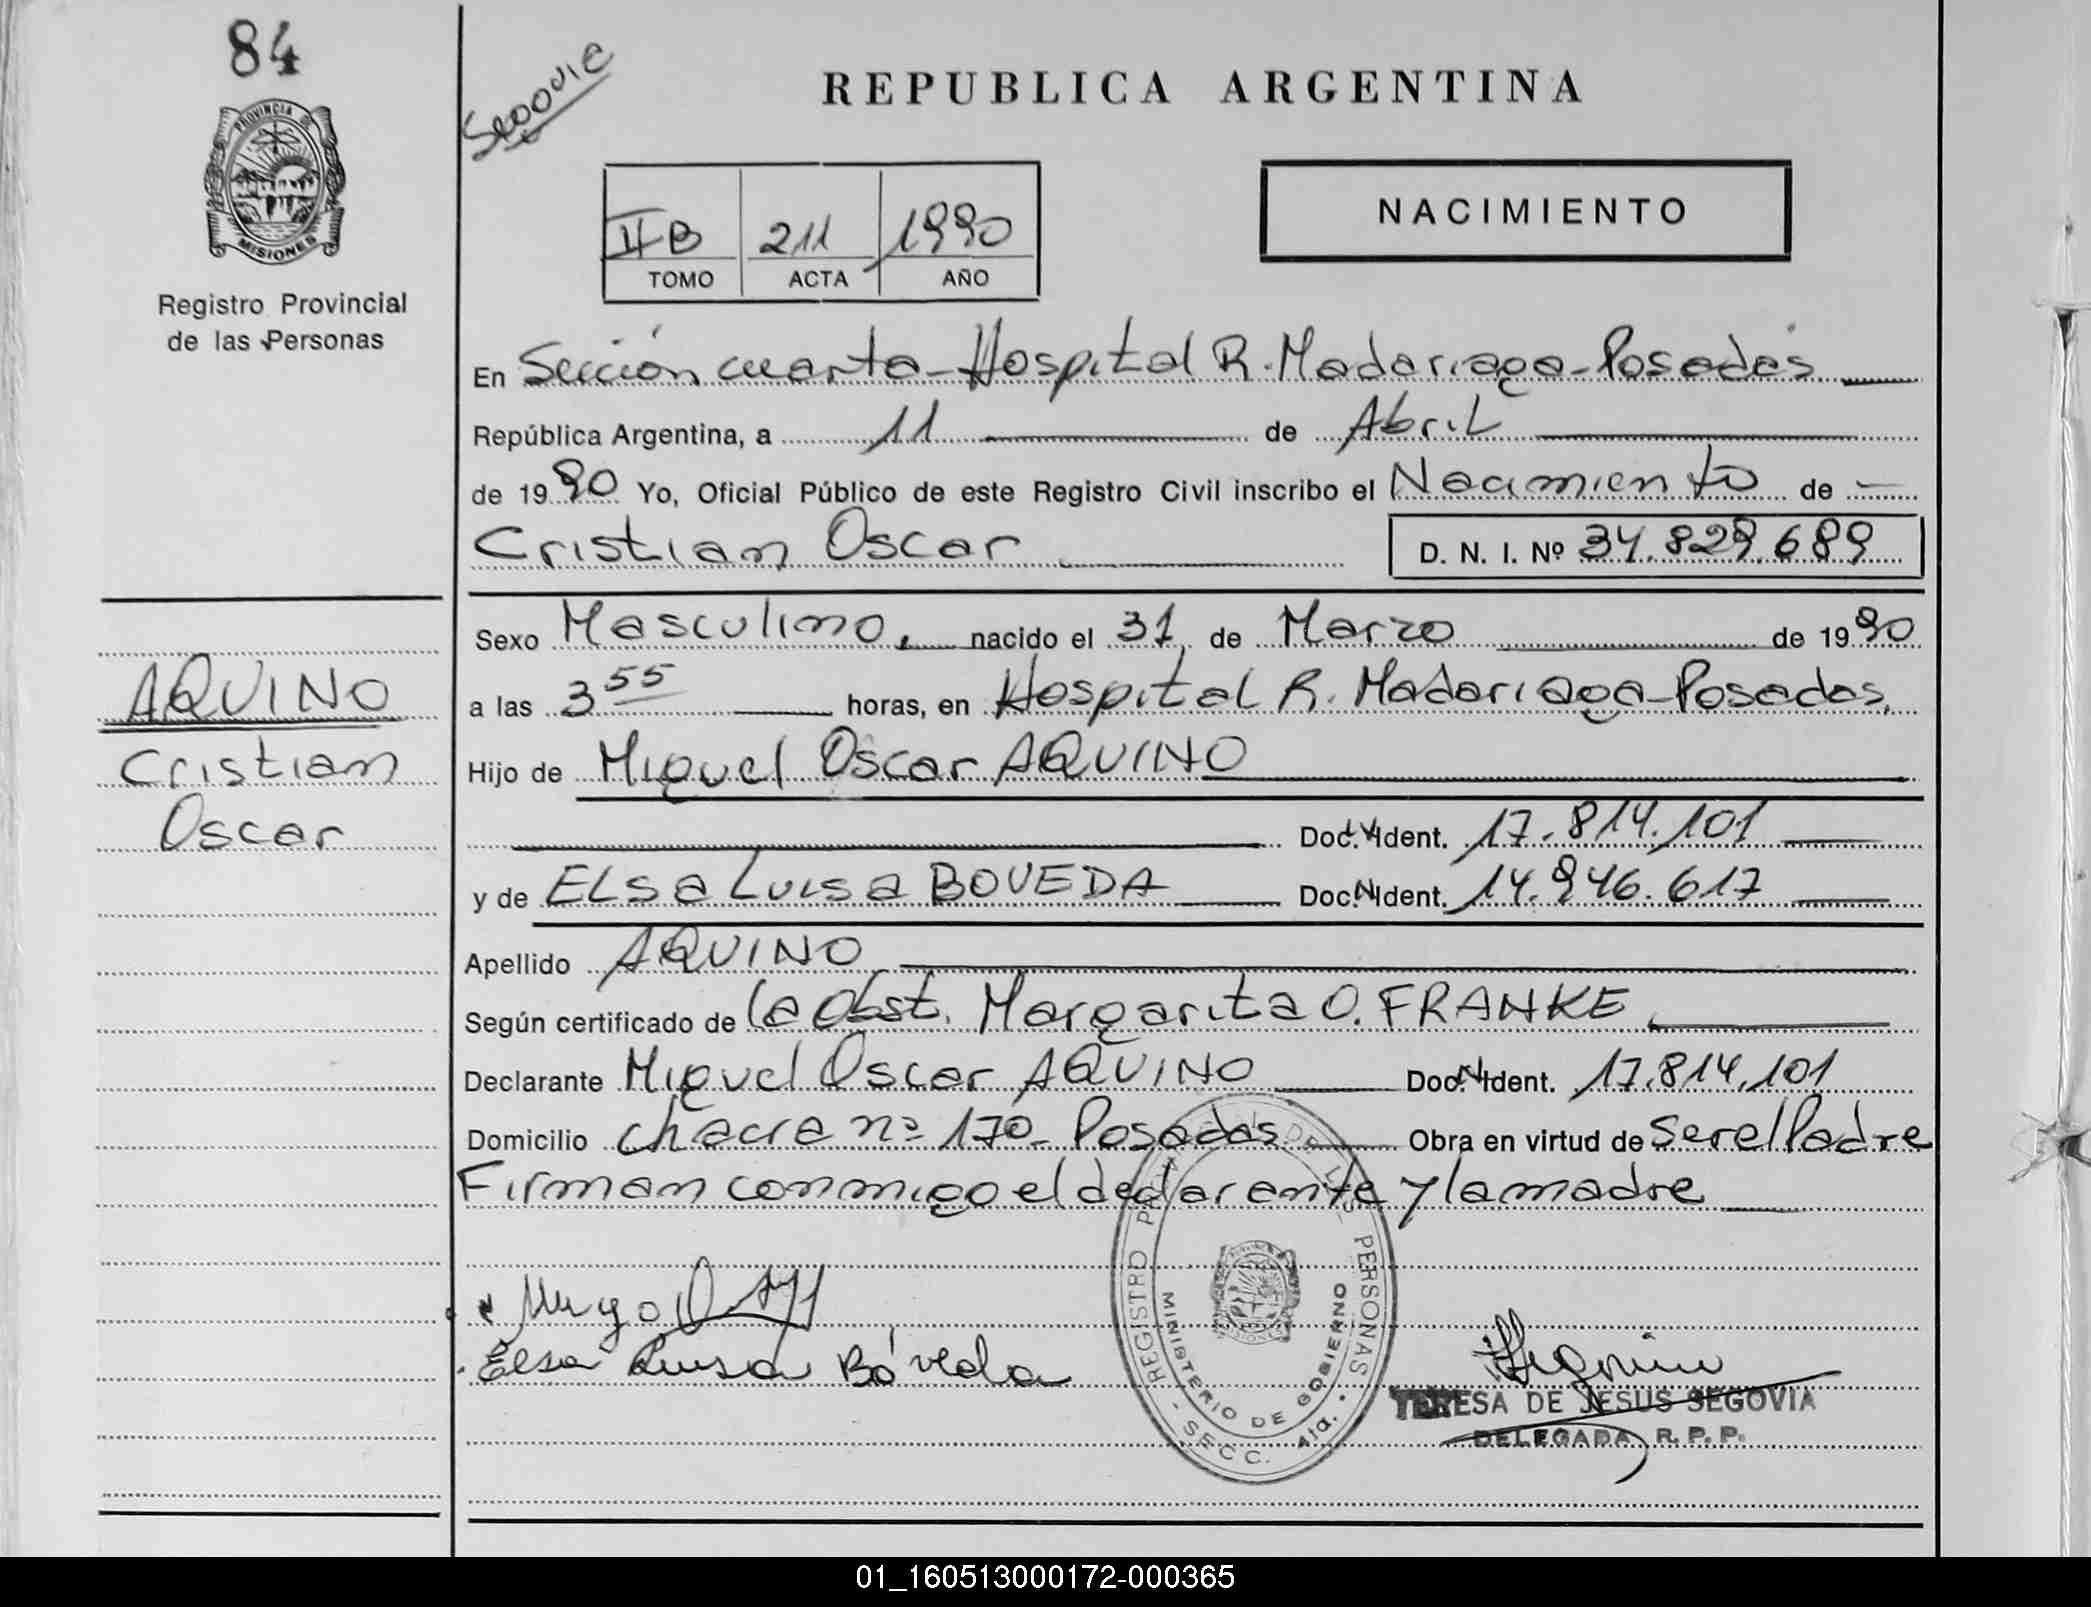 84
PROVINCIA DE
MISIONES
Registro Provincial
de las Personas
Segovia
REPUBLICA ARGENTINA
II B 211 1990
TOMO ACTA AÑO
NACIMIENTO
En Sección cuarta - Hospital R. Madariaga - Posadas
República Argentina, a 11 de Abril
de 1990 Yo, Oficial Público de este Registro Civil inscribo el Nacimiento de
Cristian Oscar D. N. I. Nº 34.829.689
Sexo Masculino, nacido el 31 de Marzo de 1990
a las 3 55 horas, en Hospital R. Madariaga - Posadas.
Hijo de Miguel Oscar AQUINO
Doc. Ident. 17.814.101
y de ELSa Luisa BOVEDA Doc. Ident. 14.946.617
Apellido AQUINO
Según certificado de la Obst. Margarita O. FRANKE
Declarante Miguel Oscar AQUINO Doc. Ident. 17.814.101
Domicilio chacra nº 170 - Posadas Obra en virtud de ser el Padre
Firman conmigo el declarante y la madre
AQUINO
Cristian
Oscar
Elsa Luisa Bóveda
REGISTRO PROVINCIAL DE LAS PERSONAS
MINISTERIO DE GOBIERNO
- SECC. 4ta. -
Segovia
TERESA DE JESUS SEGOVIA
DELEGADA R. P. P.
01_160513000172-000365